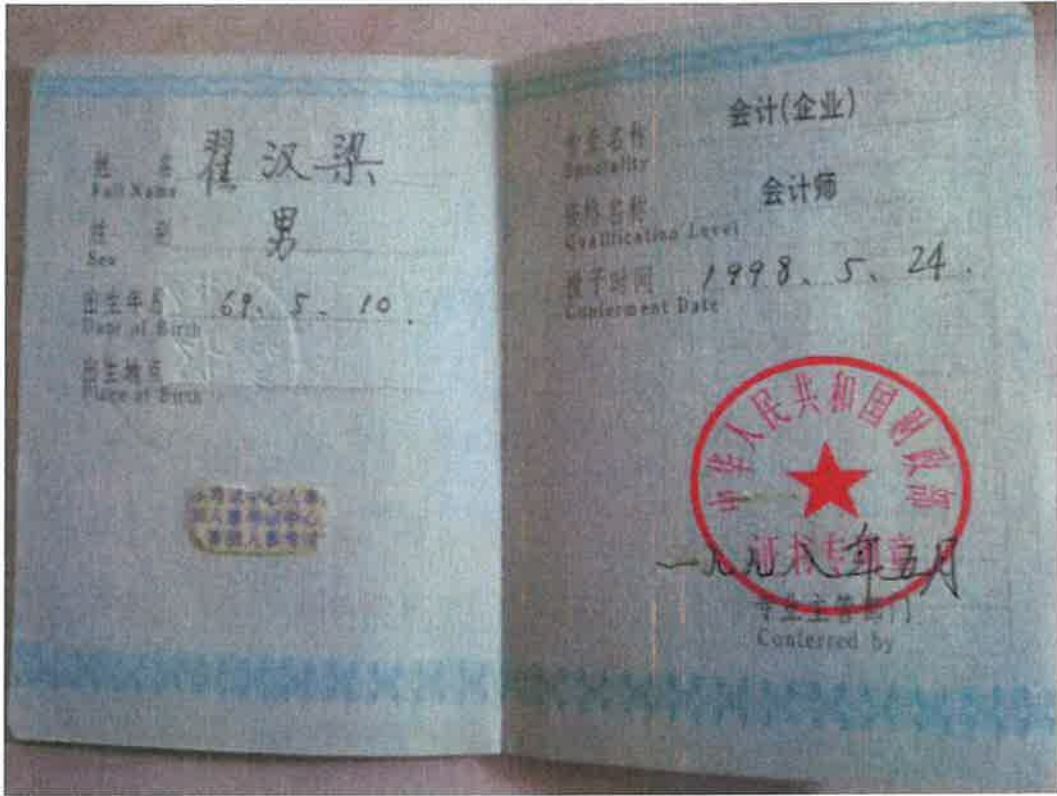 姓 名 翟汉梁
Full Name
性 别 男
Sex
出生年月 69、5、10.
Date of Birth
出生地点
Place of Birth
专业名称 会计(企业)
Speciality
资格名称 会计师
Qualification Level
授予时间 1998、5、24.
Conferment Date
中华人民共和国财政部
证书专用章
一九九八年五月
专业主管部门
Conferred by